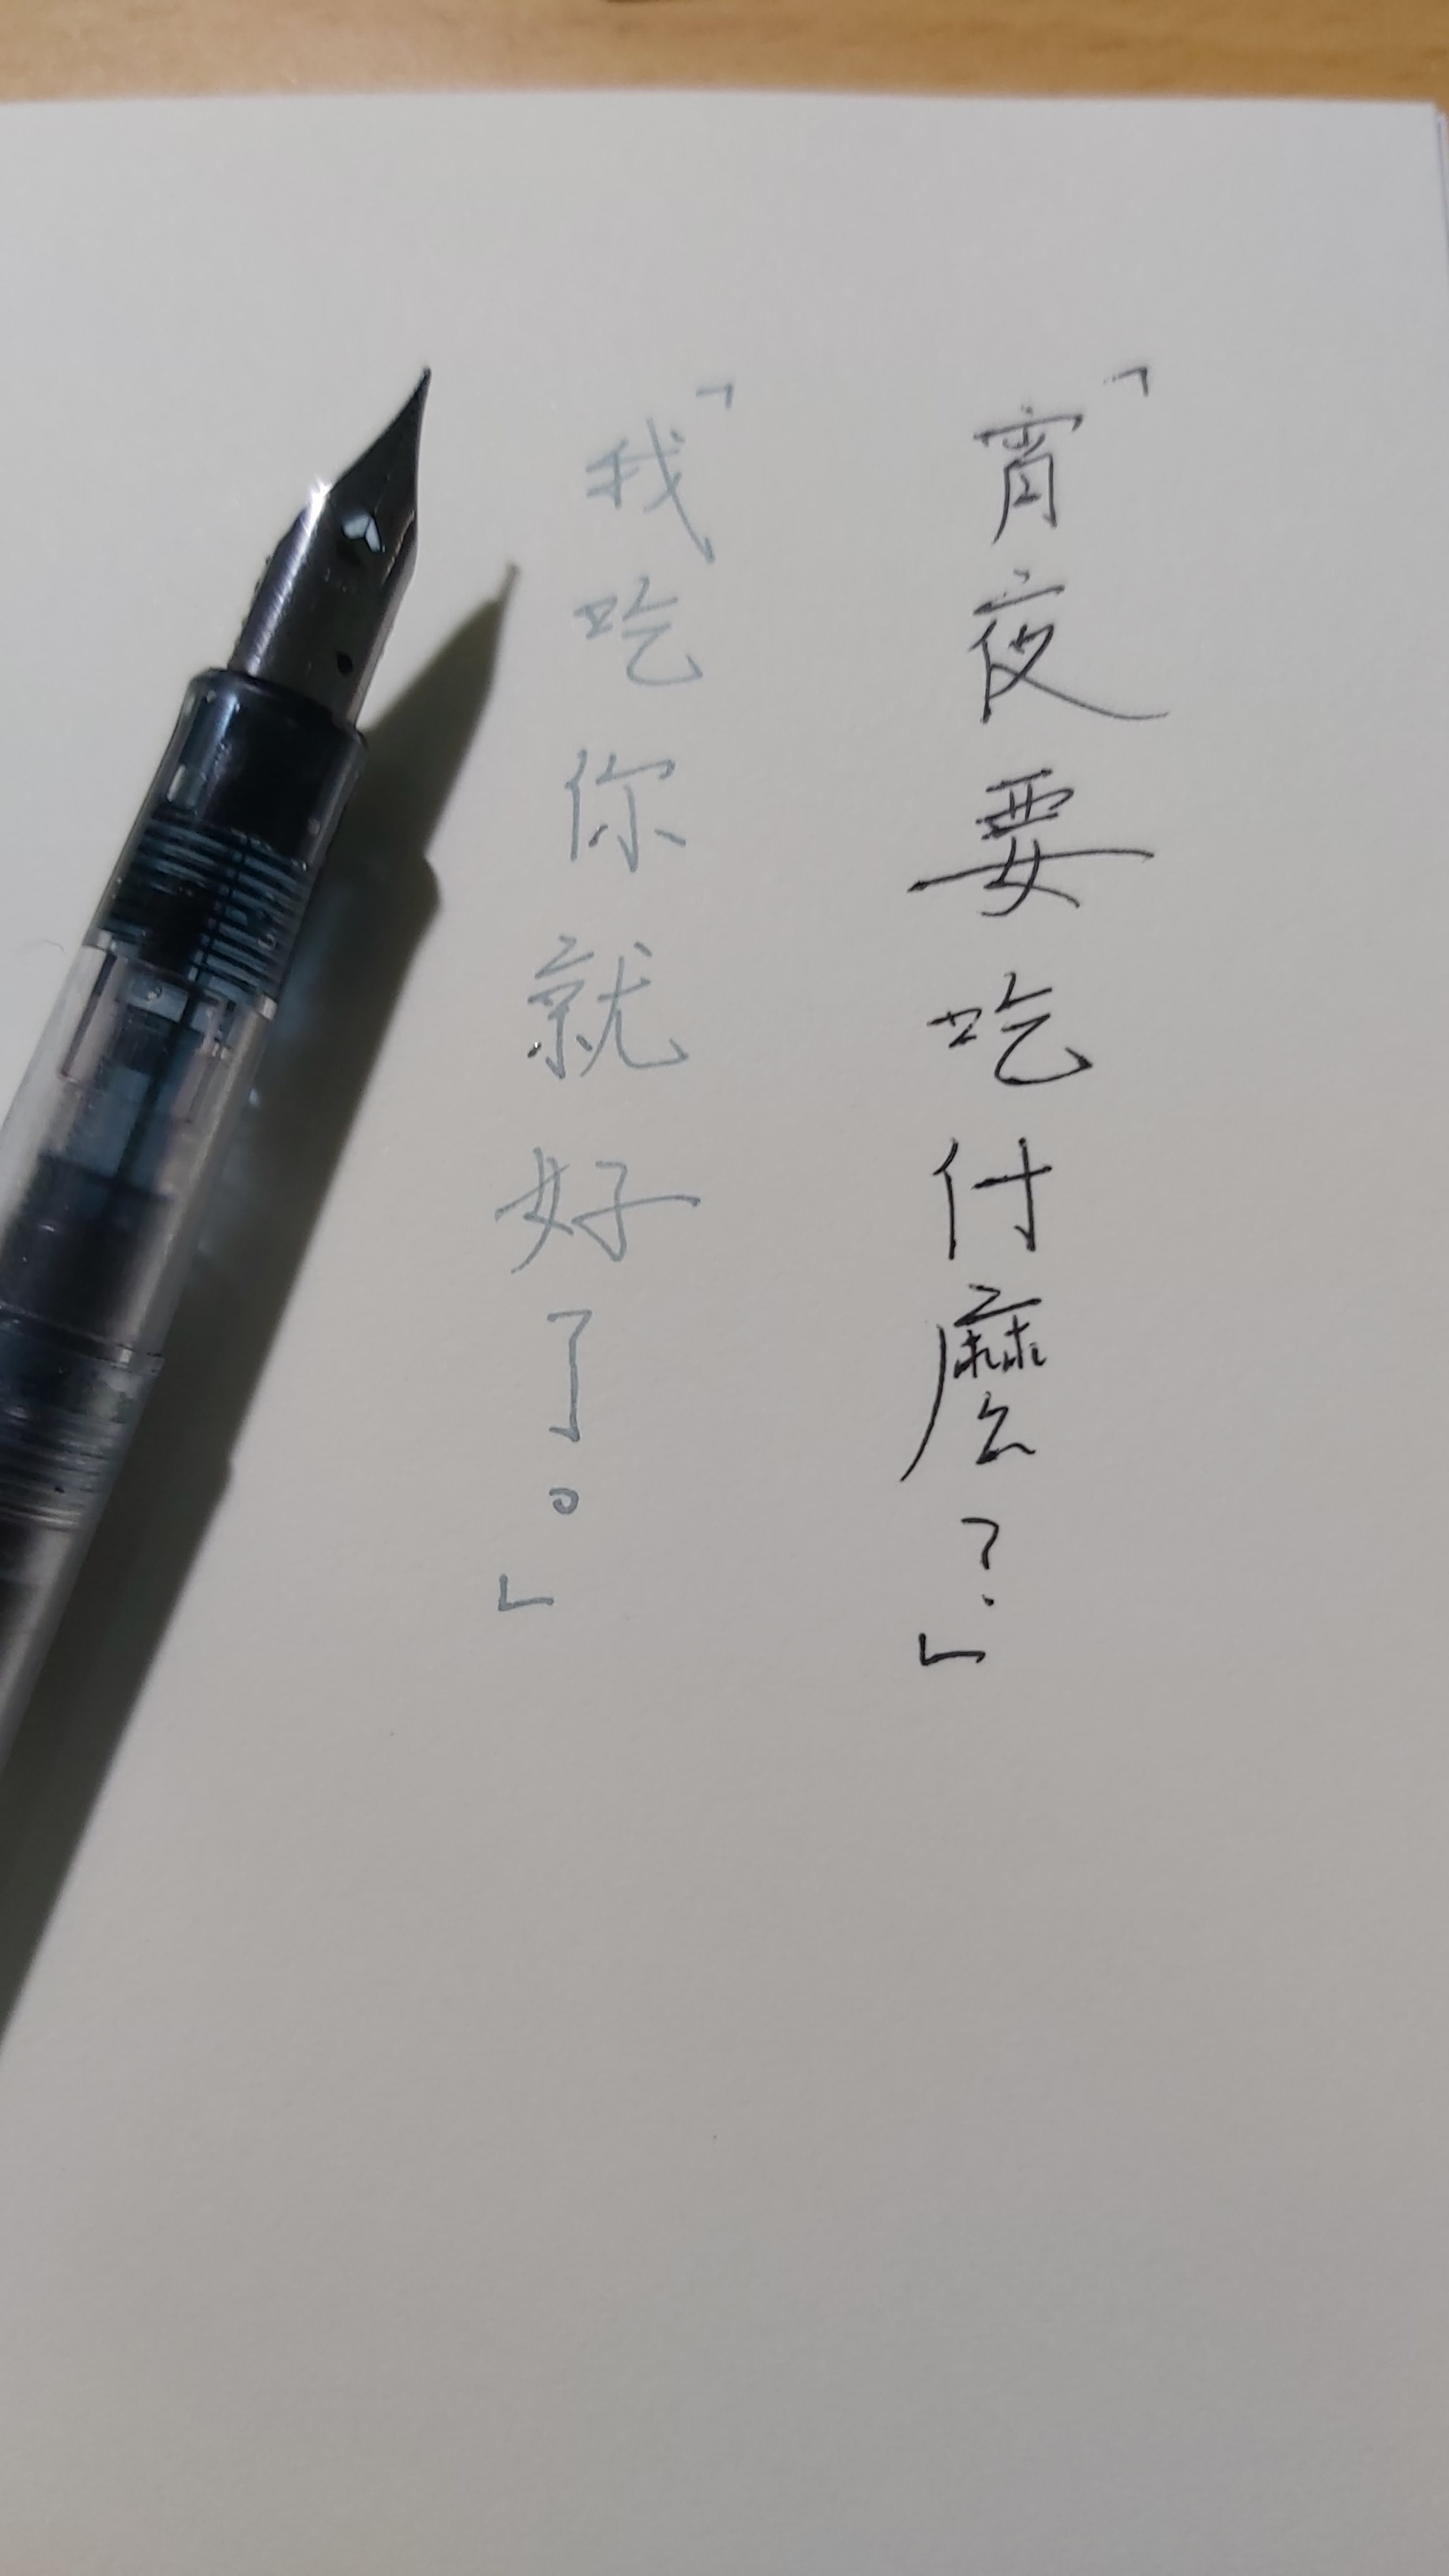 「宵夜要吃什麼？」
「我吃你就好了。」